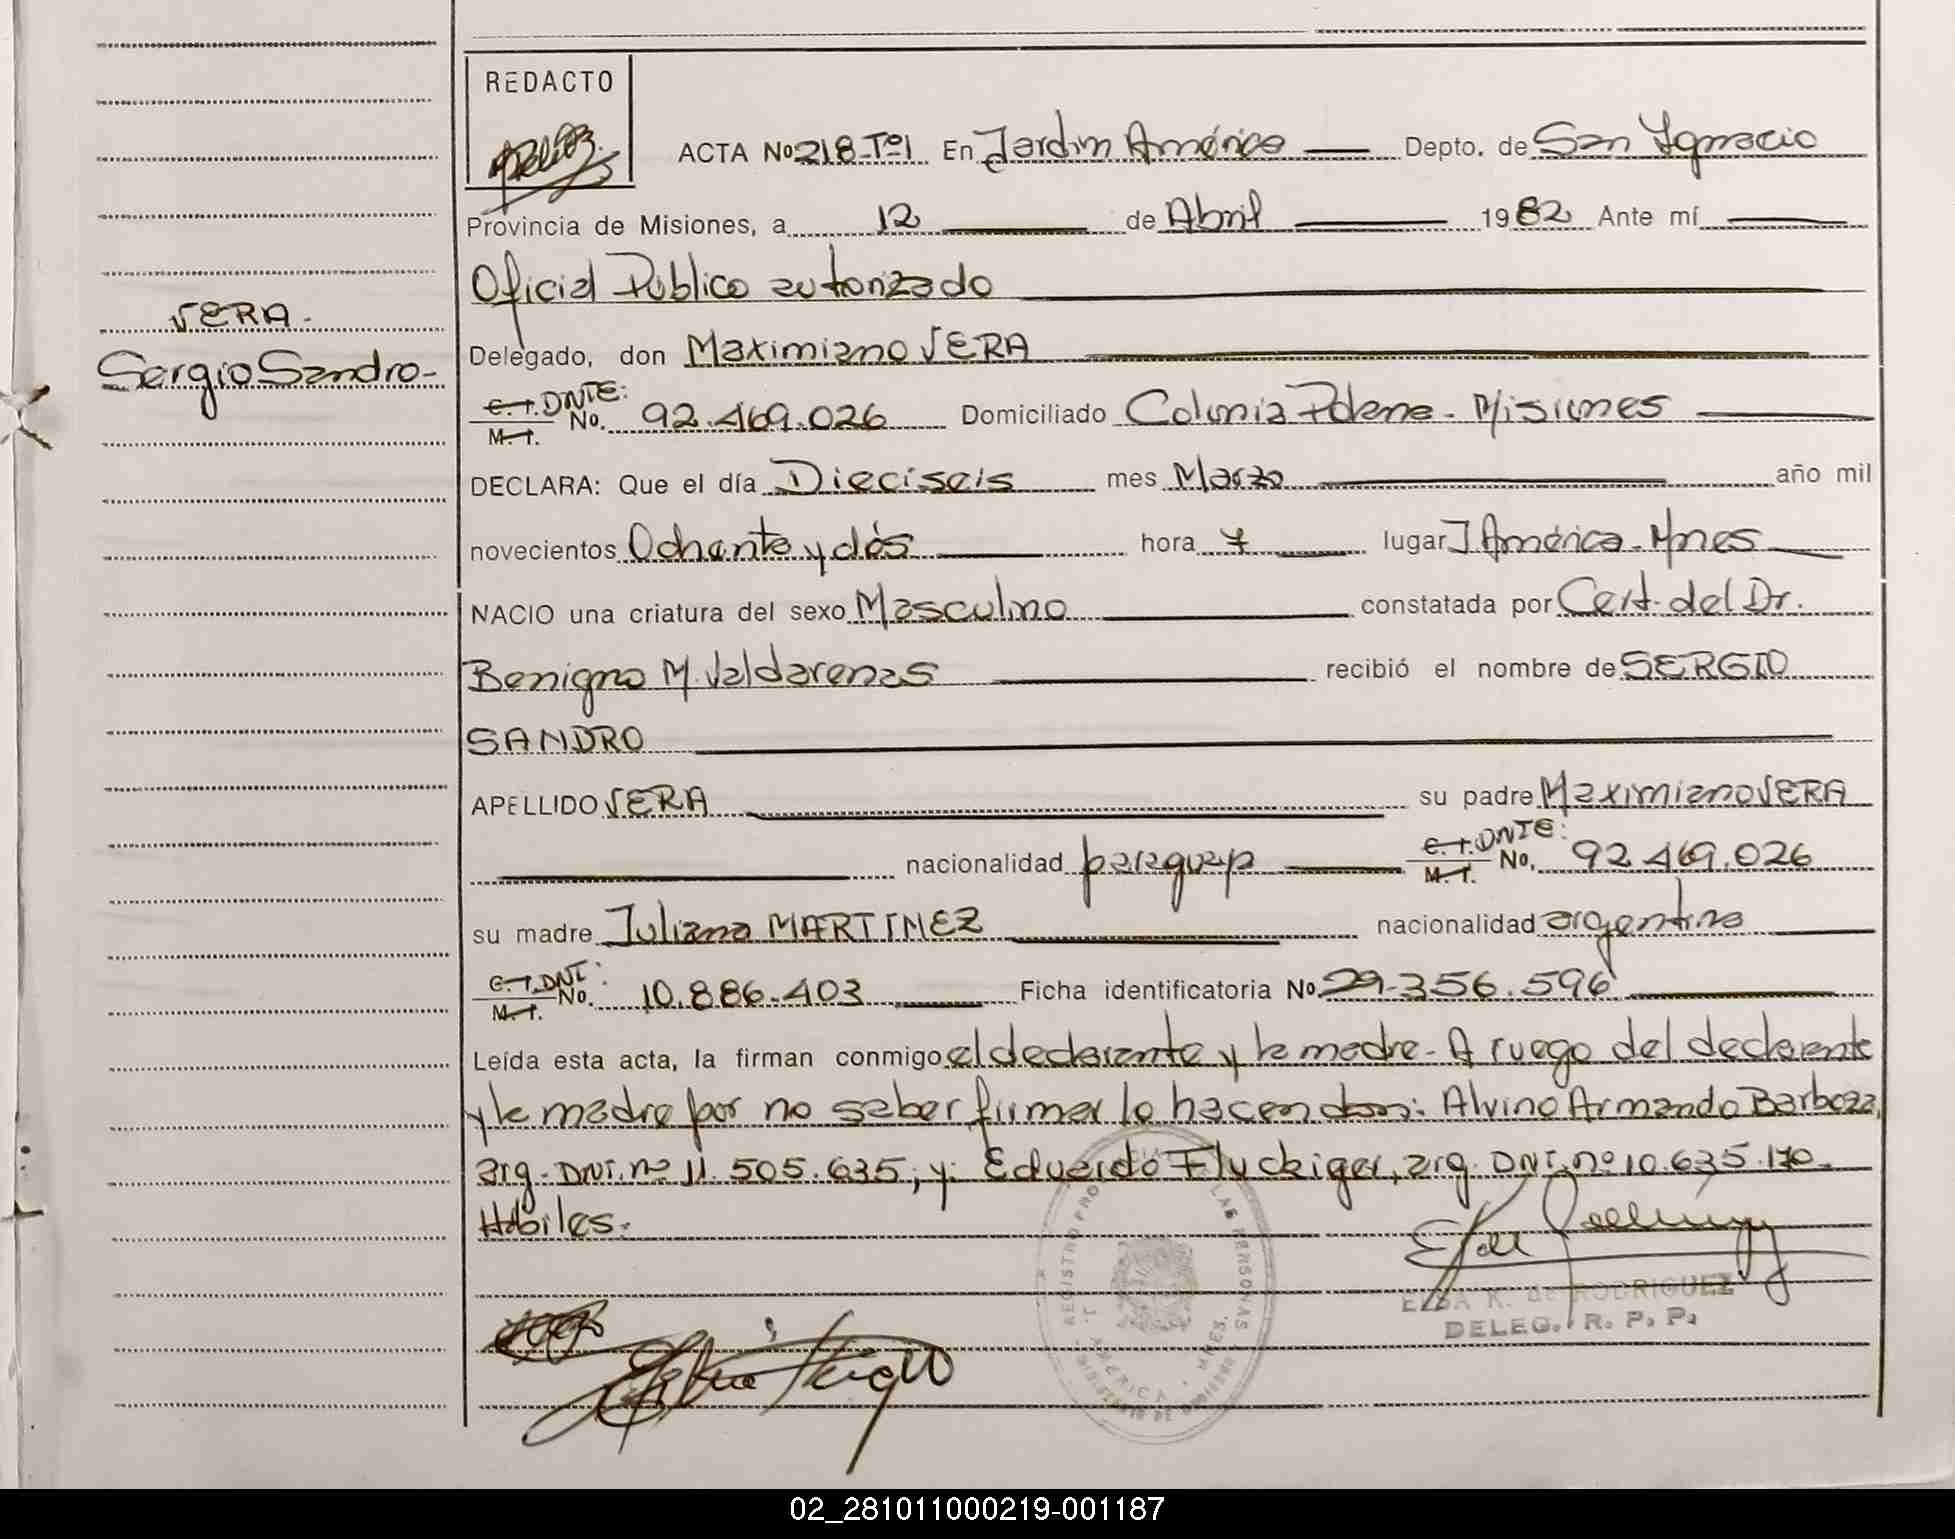 REDACTO
ACTA No 218-Tº1 En Jardín América Depto. de San Ignacio
Provincia de Misiones, a 12 de Abril 1982 Ante mí
Oficial Público autorizado
VERA.
Sergio Sandro-
Delegado, don Maximiano VERA
C.I. DNIE:
M.I. No. 92.469.026 Domiciliado Colonia Misiones
DECLARA: Que el día Dieciseis mes Marzo año mil
novecientos Ochenta y dós hora 7 lugar J. América-Mnes
NACIO una criatura del sexo Masculino constatada por Cert. del Dr.
Benigno M. Valdarenas recibió el nombre de SERGIO
SANDRO
APELLIDO VERA su padre Maximiano VERA
nacionalidad paraguay C.I. DNIE: M.I. No. 92.469.026
su madre Juliana MARTINEZ nacionalidad argentina
C.I. DNI: M.I. No. 10.886.403 Ficha identificatoria No 29.356.596
Leída esta acta, la firman conmigo el declarante y la madre- A ruego del declarante
y la madre por no saber firmar lo hacen don: Alvino Armando Barboza,
arg. DNI. nº 11.505.635; y: Eduardo Fluckiger, arg. DNI. nº 10.635.170.
Hábiles.
ELSA K. de RODRIGUEZ
DELEG. R. P. P.
02_281011000219-001187